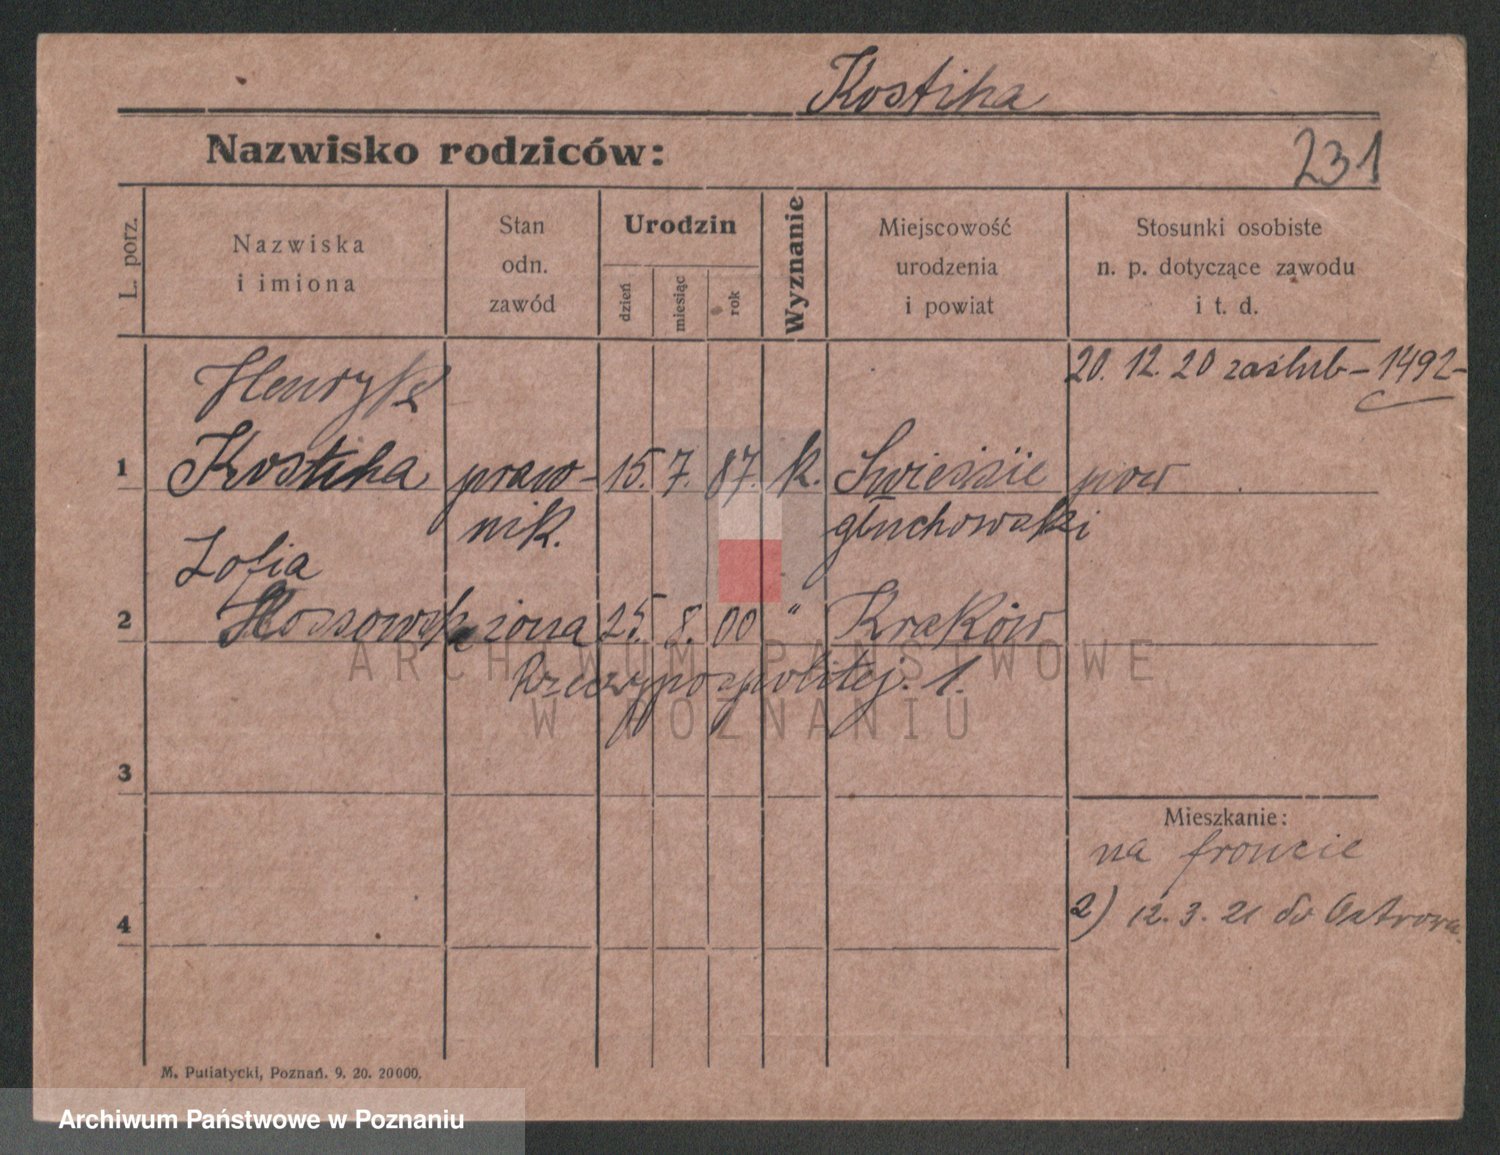 Kostiha
Nazwisko rodziców:
231
L. porz.
Nazwiska
i imiona
Stan
odn.
zawód
Urodzin
dzień
miesiąc
rok
Wyznanie
Miejscowość
urodzenia
i powiat
Stosunki osobiste
n. p. dotyczące zawodu
i t. d.
20. 12. 20 zaślub – 1492 –
Henryk
1 Kostiha praw- 15. 7. 87. k. pow
nik. głuchowski
Zofia
2 żona 25. 8. 00 " Kraków
Rzeczypospolitej. 1.
ARCHIWUM PAŃSTWOWE
W POZNANIU
3
Mieszkanie:
na froncie
4
2) 12. 3. 21 do Ostrowa.
M. Putiatycki, Poznań. 9. 20. 20000.
Archiwum Państwowe w Poznaniu